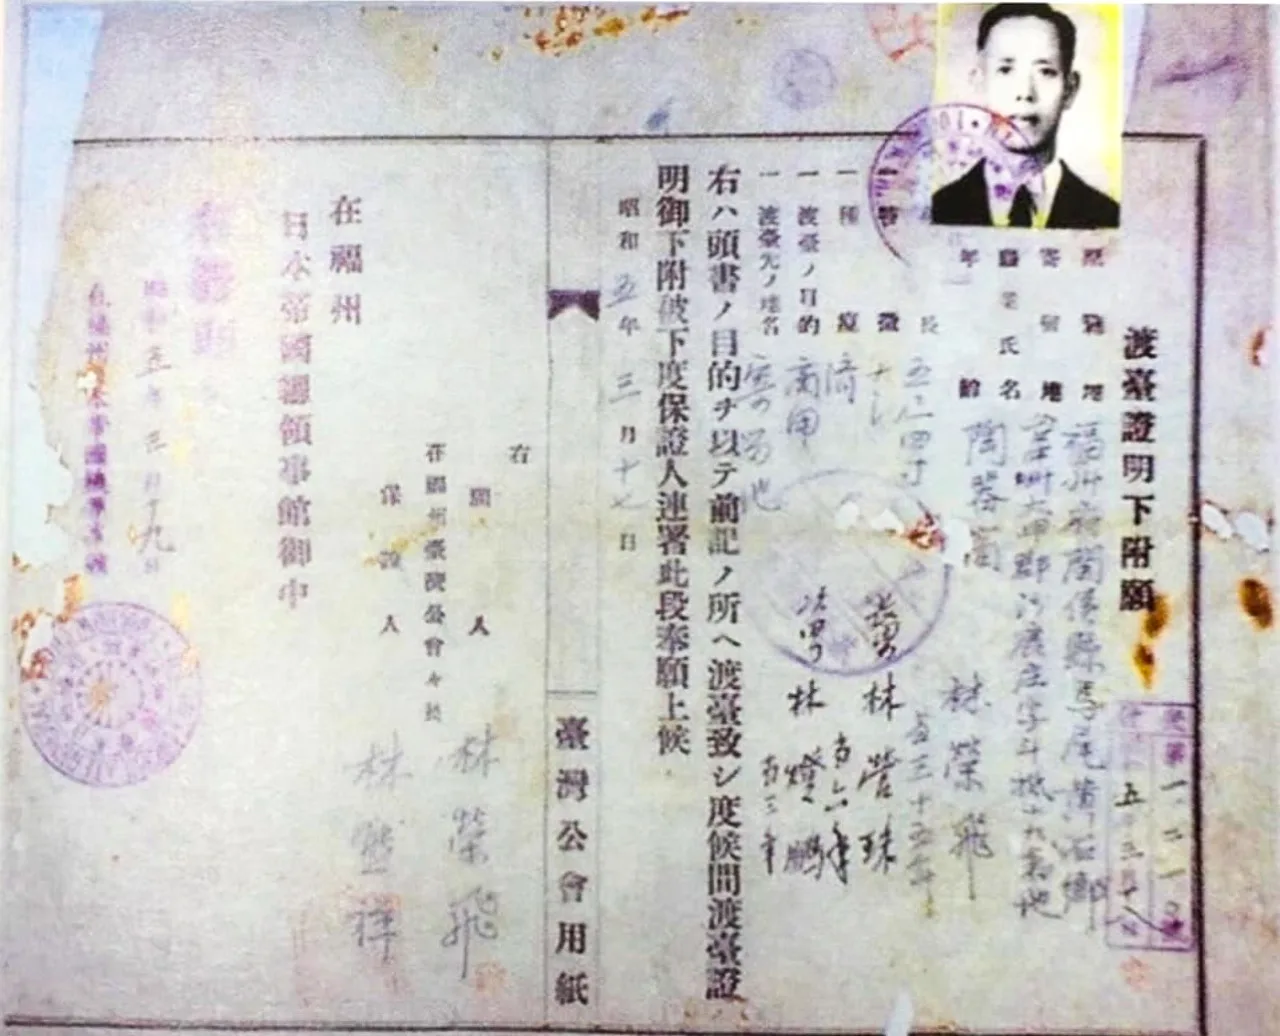 渡臺證明下附願
原籍地 福州府閩侯縣馬尾
寄留地
職業氏名 陶器商 林榮飛
年齡 當三十五年
身長 五尺四寸
特徵
種痘 濟
一渡臺ノ目的 商用
一渡臺先ノ地名 寄留地
長男 林營珠 當六年
次男 林燈鵬 當三年
右ハ頭書ノ目的ヲ以テ前記ノ所ヘ渡臺致シ度候間渡臺證
明御下附被下度保證人連署此段奉願上候
昭和五年三月十七日
臺灣公會用紙
右
願人 林榮飛
在福州臺灣公會々長
保證人
在福州
日本帝國總領事館御中
昭和五年三月十九日
在福州日本帝國總領事館